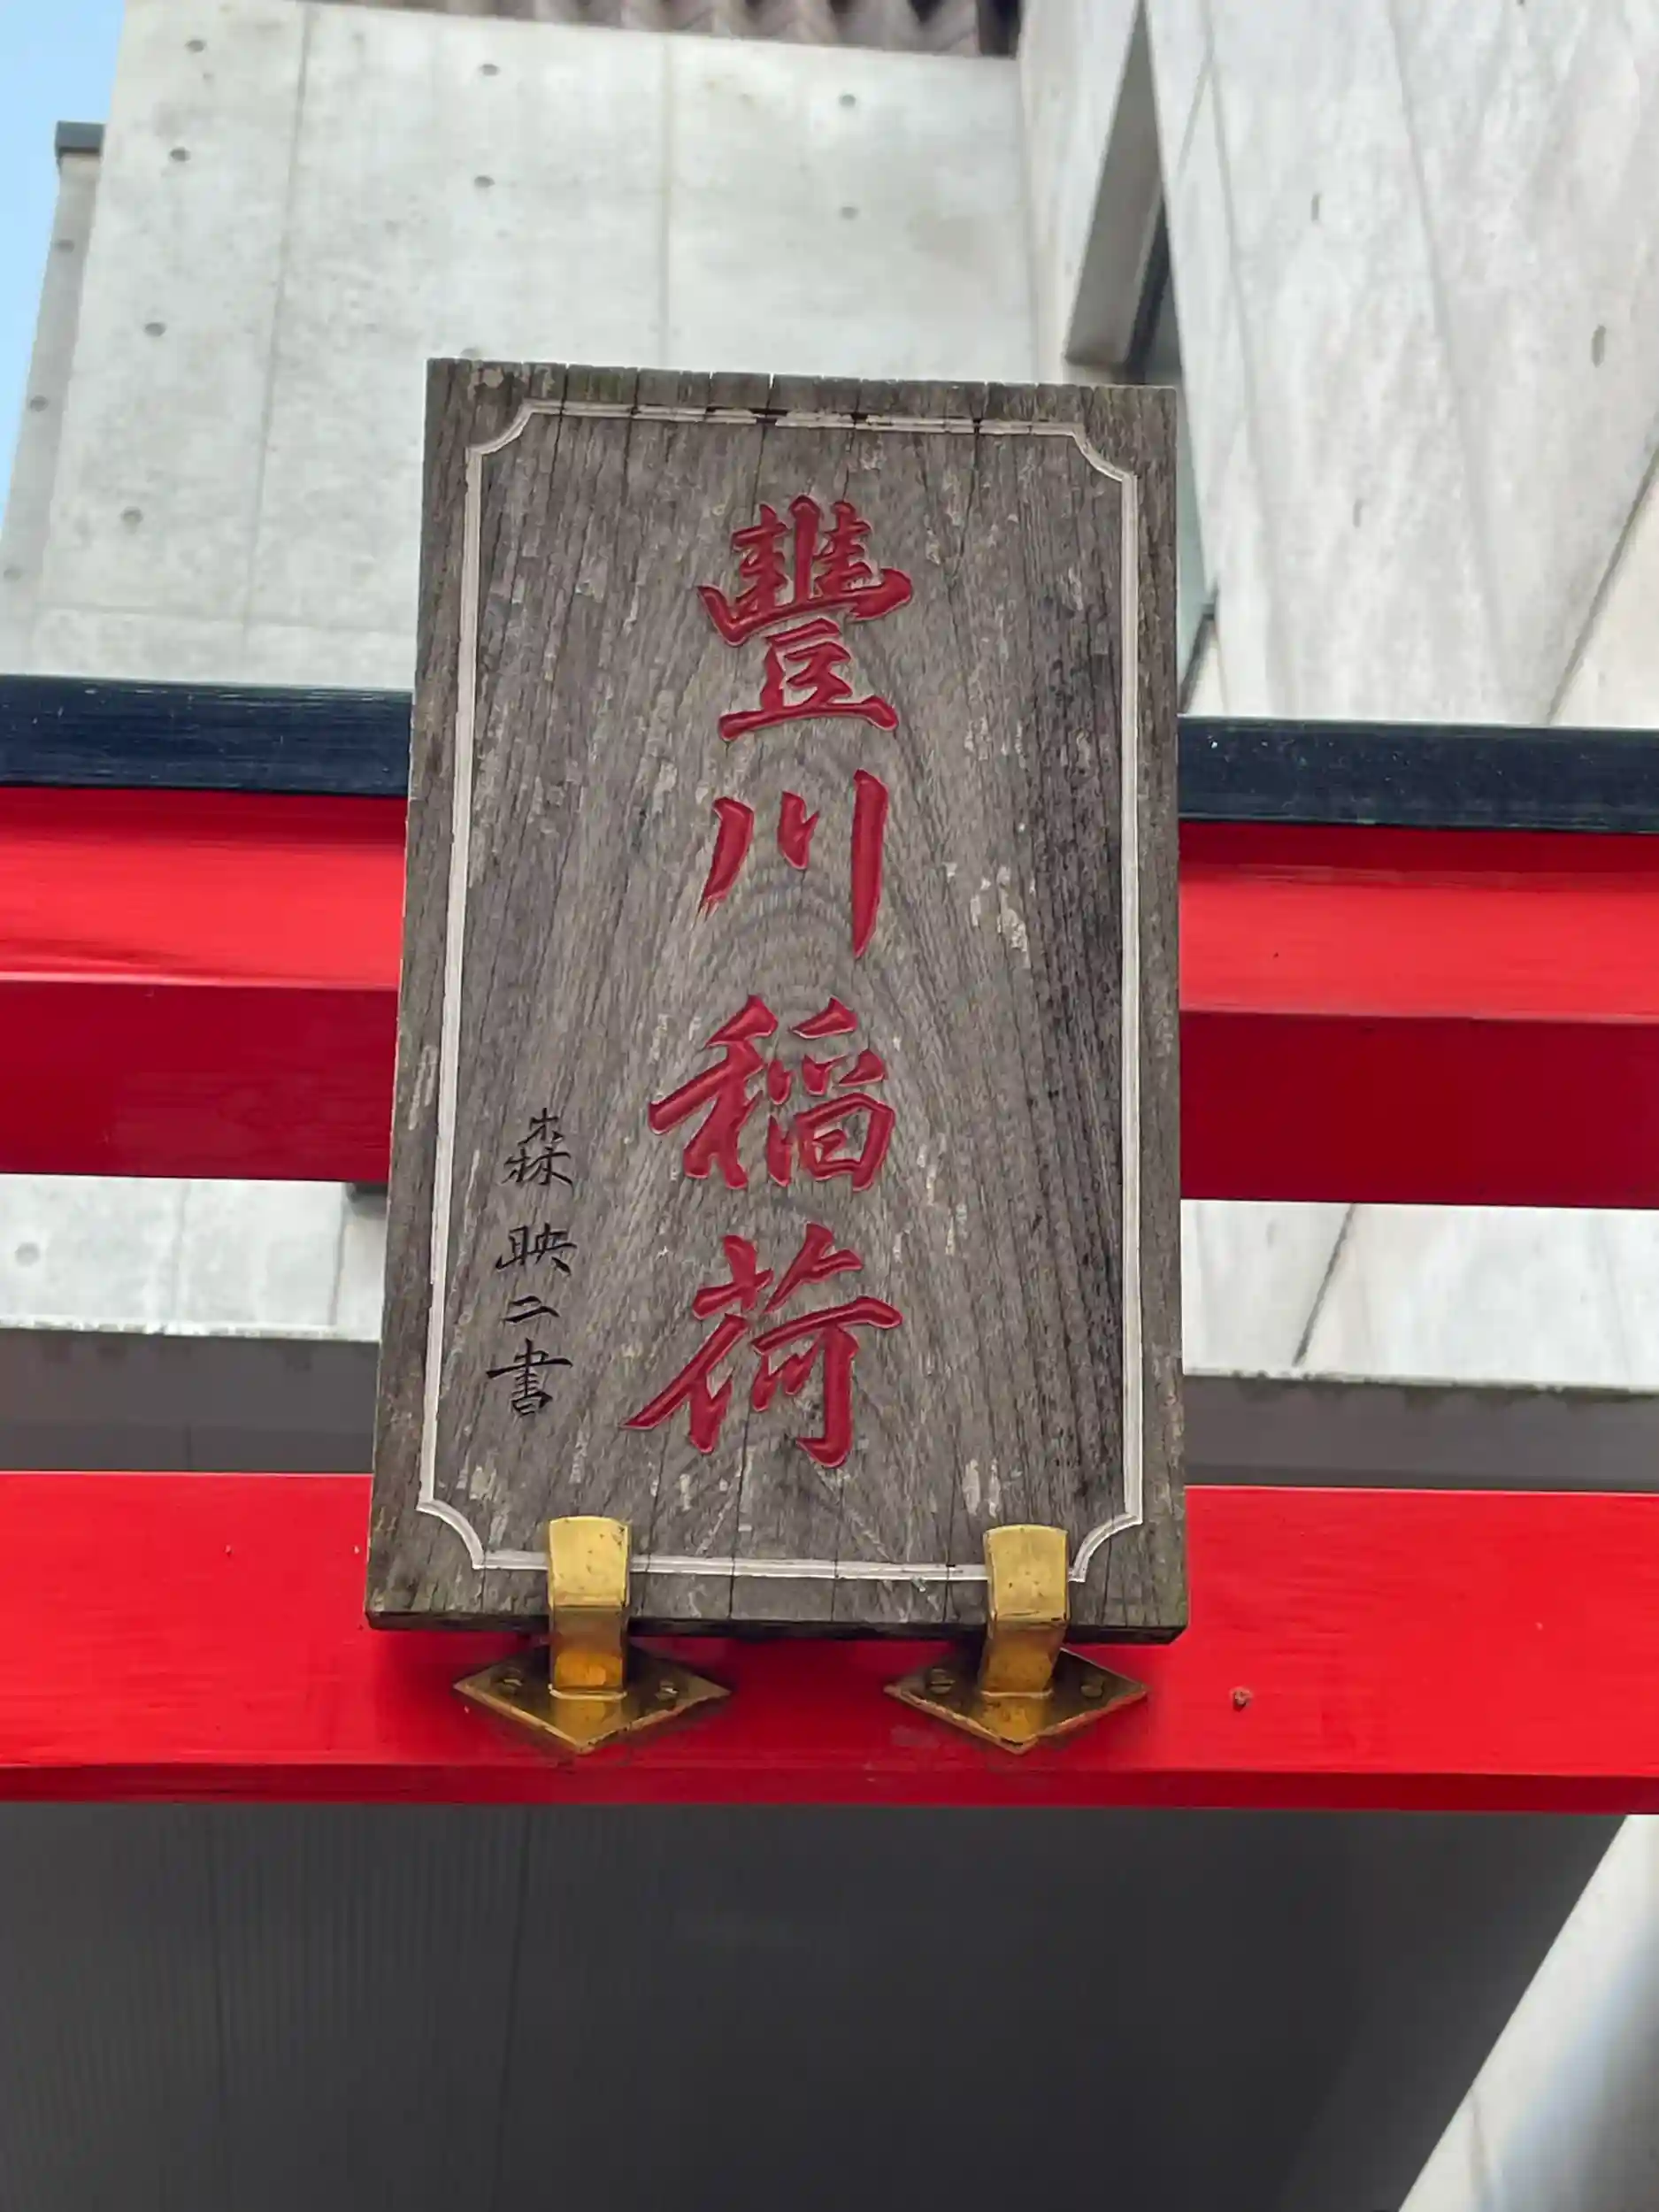 豐川稲荷
森映二書